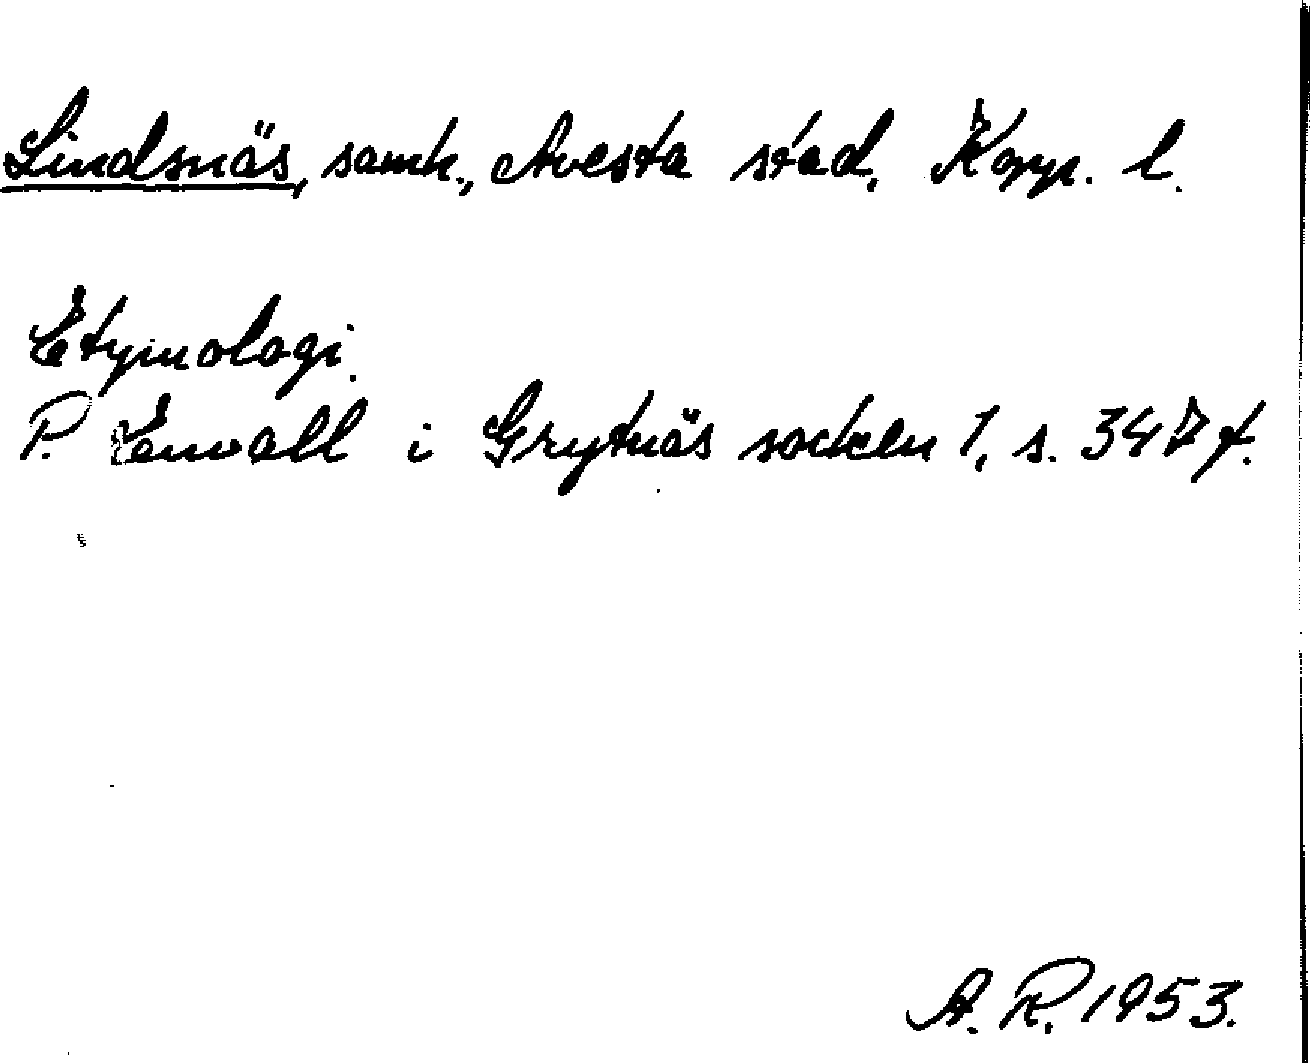 Lindsnäs, samh., Avesta stad, Kopp. l.
Etymologi.
P. Envall i Grytnäs socken 1, s. 347 f.
A. R. 1953.